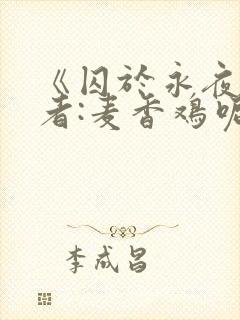 《囚於永夜
者:麦香鸡呢
李成昌